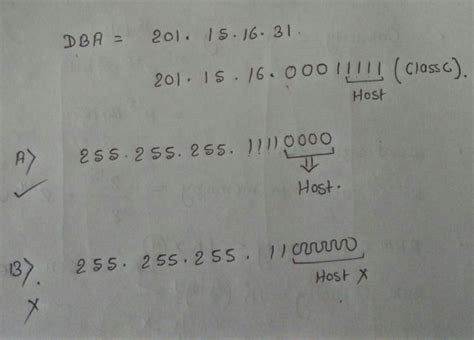 DBA = 201. 15. 16. 31.
201. 15. 16. 00011111 (Class C).
Host
A) 255. 255. 255. 11110000
Host.
B). 255. 255. 255. 11000000
Host X
X